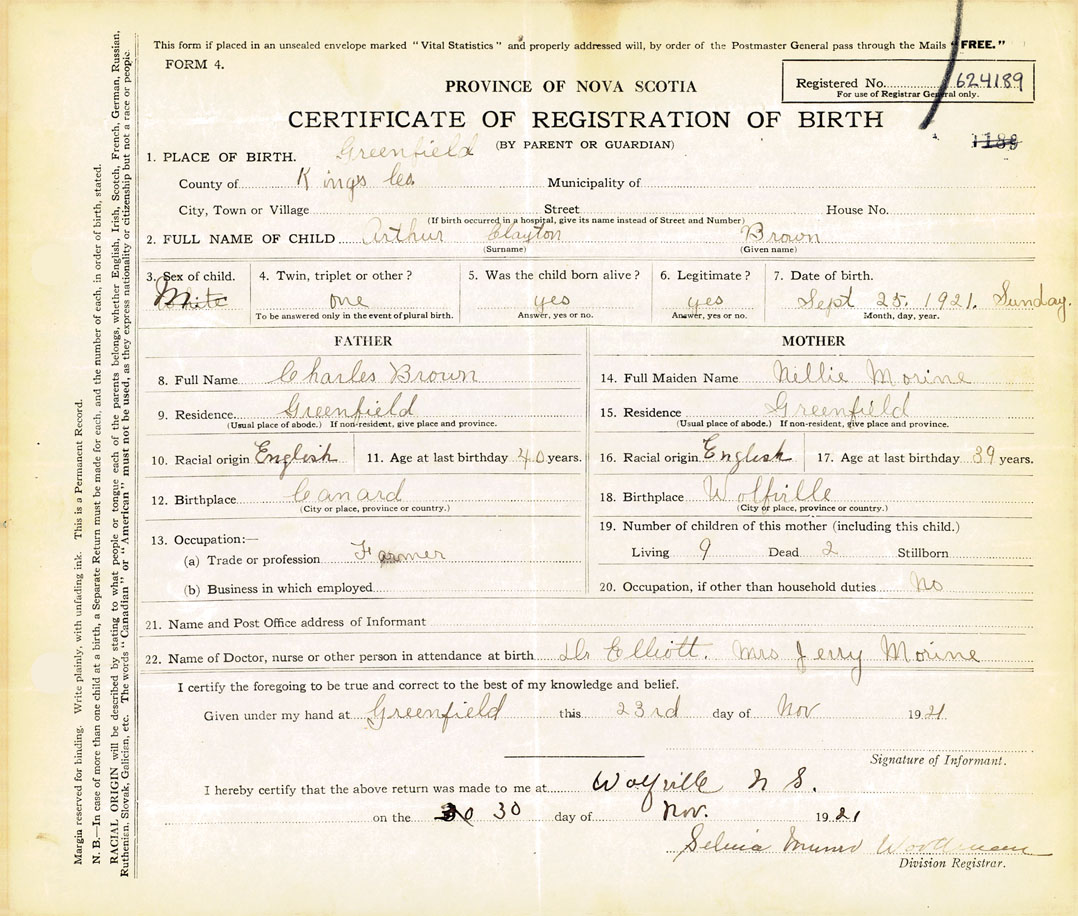 This form if placed in an unsealed envelope marked "Vital Statistics" and properly addressed will, by order of the Postmaster General pass through the Mails "FREE."
FORM 4.
PROVINCE OF NOVA SCOTIA
Registered No. 624189
For use of Registrar General only.
CERTIFICATE OF REGISTRATION OF BIRTH
(BY PARENT OR GUARDIAN)
1188
1. PLACE OF BIRTH. Greenfield
County of Kings Co. Municipality of
City, Town or Village Street House No.
(If birth occurred in a hospital, give its name instead of Street and Number)
2. FULL NAME OF CHILD Arthur Clayton Brown
(Surname) (Given name)
3. Sex of child. 4. Twin, triplet or other? 5. Was the child born alive? 6. Legitimate? 7. Date of birth.
White M one yes yes Sept 25. 1921. Sunday.
To be answered only in the event of plural birth. Answer, yes or no. Answer, yes or no. Month, day, year.
FATHER
8. Full Name Charles Brown
9. Residence Greenfield
(Usual place of abode.) If non-resident, give place and province.
10. Racial origin English 11. Age at last birthday 40 years.
12. Birthplace Canard
(City or place, province or country.)
13. Occupation:—
(a) Trade or profession Farmer
(b) Business in which employed
MOTHER
14. Full Maiden Name Nellie Morine
15. Residence Greenfield
(Usual place of abode.) If non-resident, give place and province.
16. Racial origin English 17. Age at last birthday 39 years.
18. Birthplace Wolfville
(City or place, province or country.)
19. Number of children of this mother (including this child.)
Living 9 Dead 2 Stillborn
20. Occupation, if other than household duties No
21. Name and Post Office address of Informant
22. Name of Doctor, nurse or other person in attendance at birth Dr Elliott. Mrs Jerry Morine
I certify the foregoing to be true and correct to the best of my knowledge and belief.
Given under my hand at Greenfield this 23rd day of Nov 1921.
Signature of Informant.
I hereby certify that the above return was made to me at Wolfville N S.
on the 30 30 day of Nov. 1921
Division Registrar.
Margin reserved for binding. Write plainly, with unfading ink. This is a Permanent Record.
N. B.—In case of more than one child at a birth, a Separate Return must be made for each, and the number of each, in order of birth, stated.
RACIAL ORIGIN will be described by stating to what people or tongue each of the parents belongs, whether English, Irish, Scotch, French, German, Russian,
Ruthenian, Slovak, Galician, etc. The words "Canadian" or "American" must not be used, as they express nationality or citizenship but not a race or people.